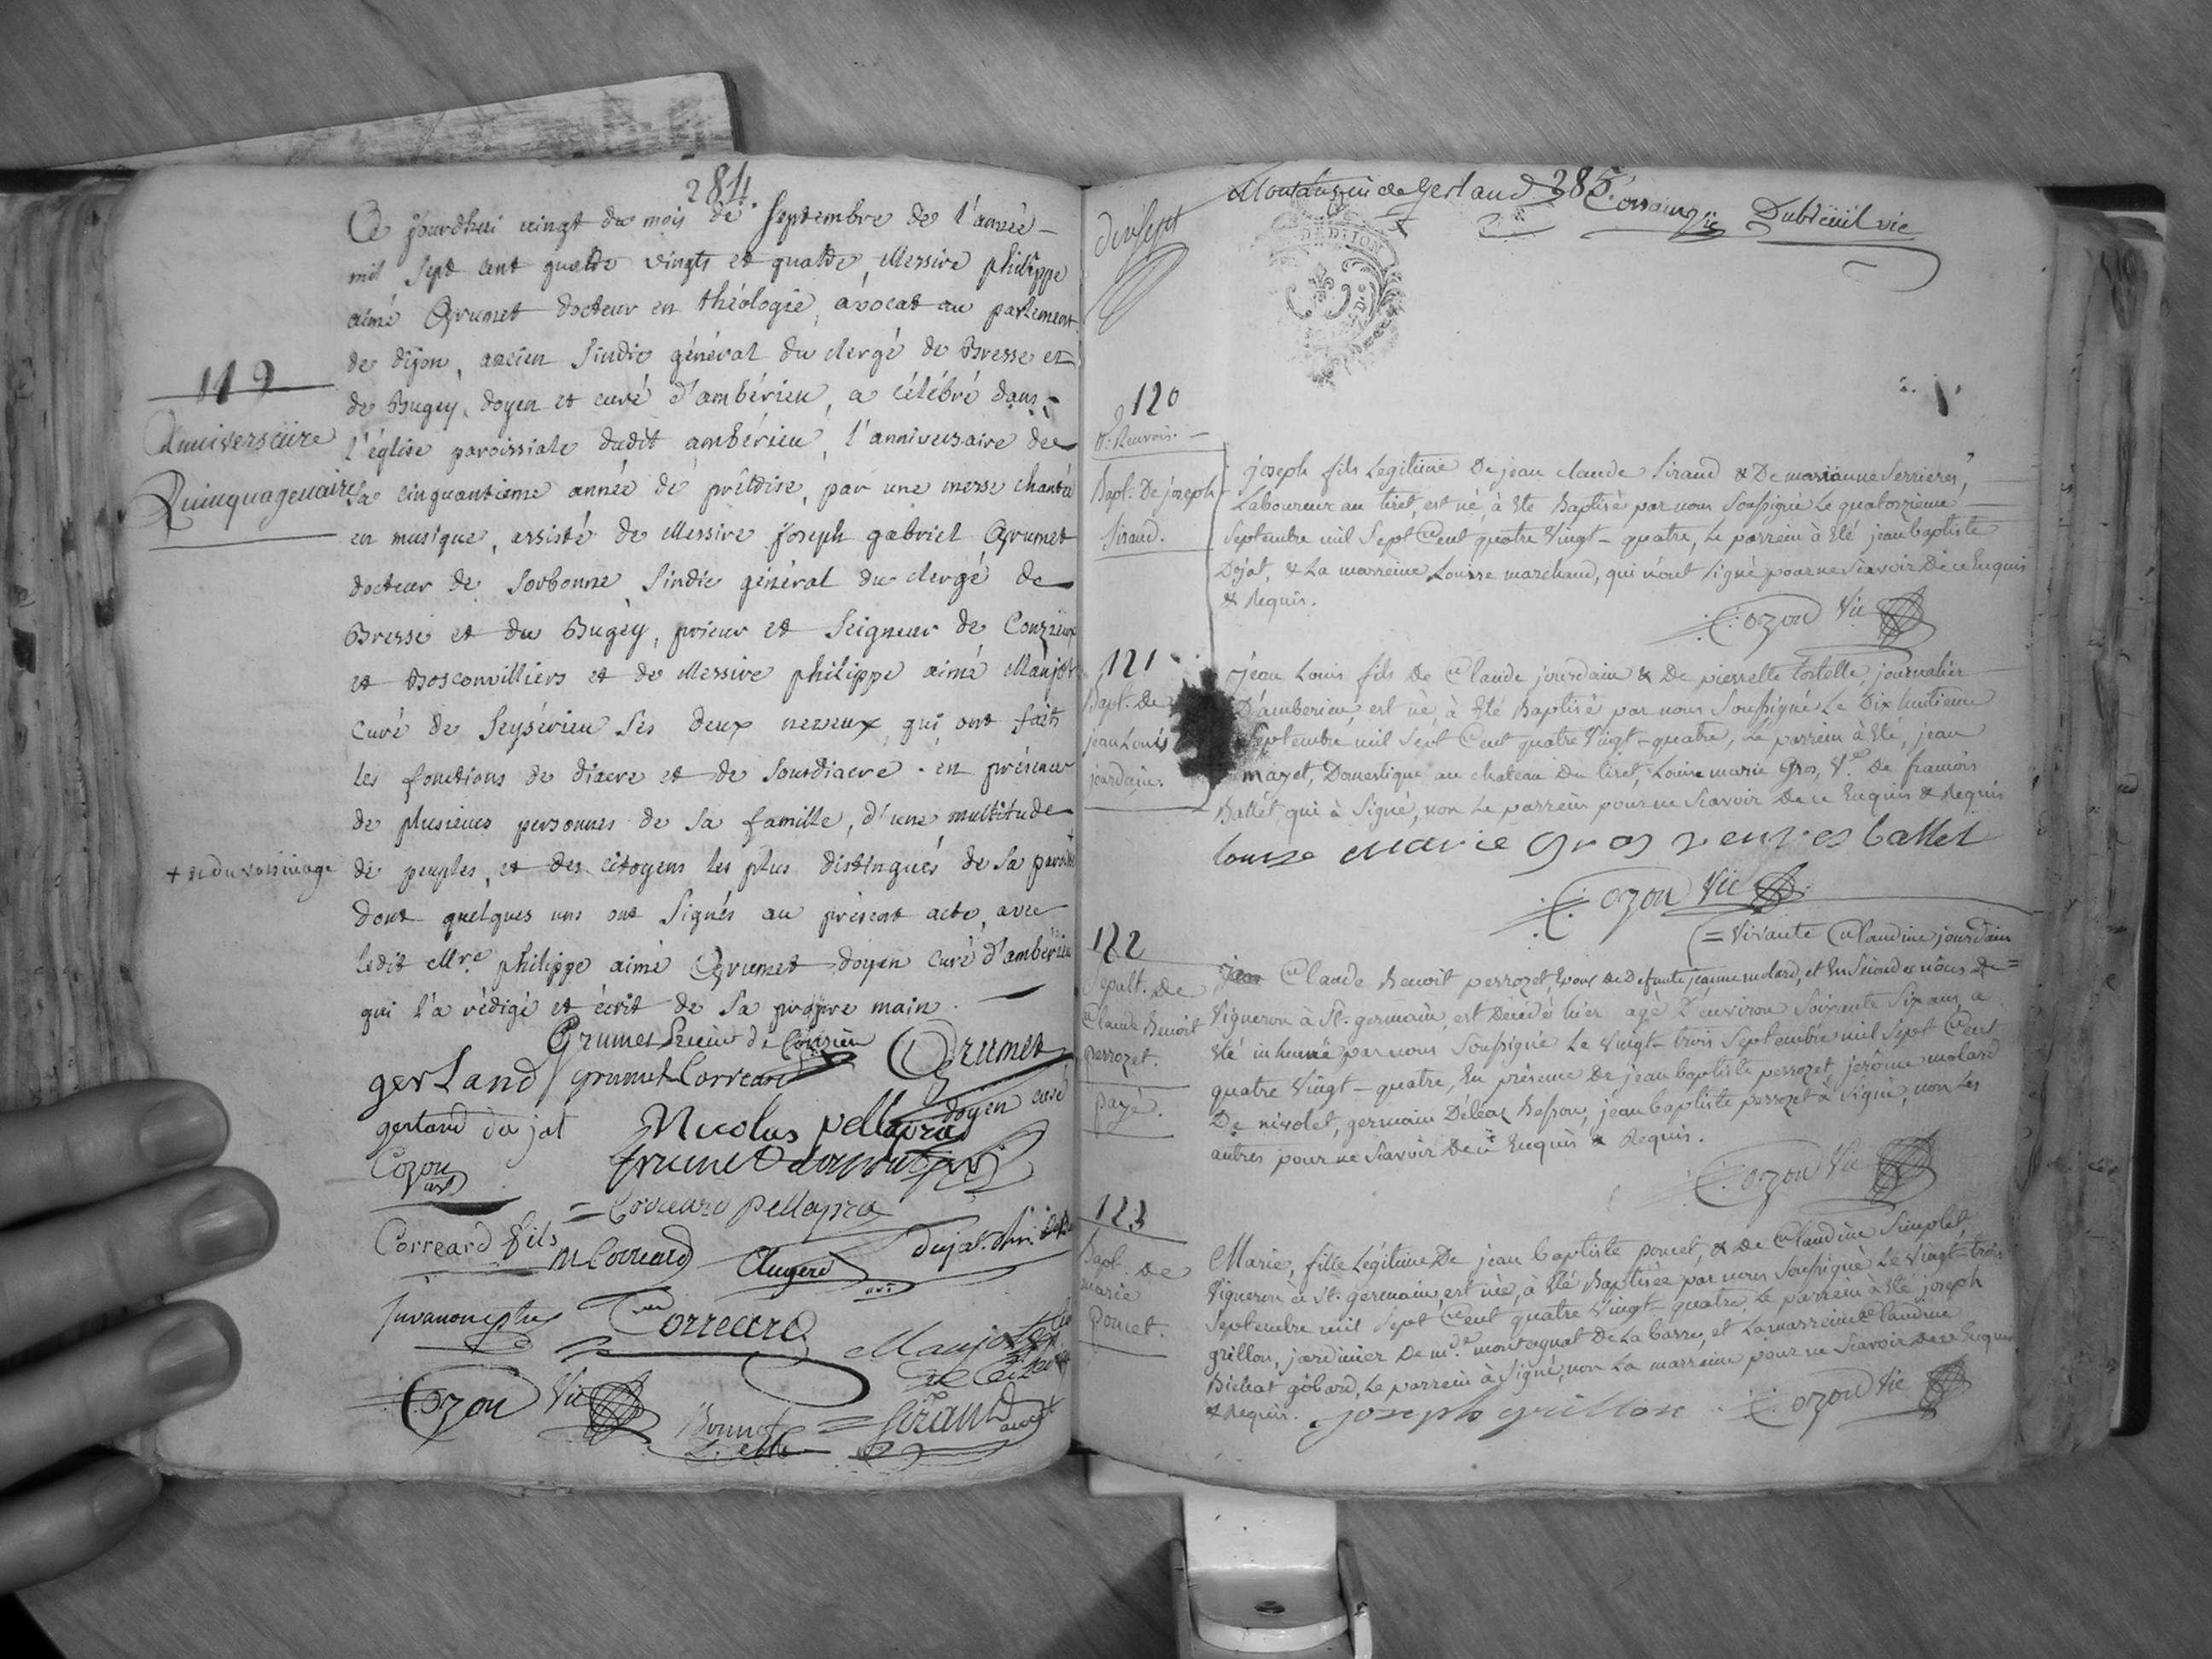 284.
Ce jourdhui vingt du mois de Septembre de l'année
mil sept cent quatre vingts et quatre, Messire philippe
aimé Grumet docteur en théologie, avocat au parlement
de dijon, ancien Sindic général du clergé de Bresse et
de Bugey, doyen et curé d'ambérieu, a célébré dans
119
Anniversaire
Quinquagenaire
l'église paroissiale dudit ambérieu, l'anniversaire de
sa cinquantieme année de prêtrise, par une messe chantée
en musique, assisté de Messire joseph gabriel Grumet
docteur de Sorbonne, Sindic général du clergé de
Bresse et du Bugey, prieur et Seigneur de Conzieux
et Bosconvilliers et de Messire philippe aimé Maujot
curé de Seysérieu ses deux neveux, qui ont faits
les fonctions de diacre et de sousdiacre. en présence
de plusieurs personnes de sa famille, d'une multitude
+ et du voisinage
de peuples, et des citoyens les plus distingués de sa paroisse
dont quelques uns ont signés au présent acte, avec
ledit Mre philippe aimé Grumet doyen curé d'ambérieu
qui l'a rédigé et écrit de sa propre main.
Grumet prieur de Conzieu
Grumet
doyen curé
gerLand
grumet Corréard
gerland dujat
Nicolas pellapra
Cozon
Correard pellapra
Correard fils
M Correard
Augerd
dujat
Juvanon
Correard
Maujot
Cozon Vic
Bonnet
Sirand
285
Montanzin de Gerland
Dubreüil vic
dixsept
120
Bapt. De joseph
Sirand.
joseph fils Legitime De jean claude Sirand & De marianne Serrieres,
Laboureur au tiret, est né, à Eté Baptisé par nous Soussigné Le quatorzieme
Septembre mil Sept Cent quatre Vingt-quatre, Le parrein à Eté jean baptiste
Dojat, & La marreine Louise marchand, qui n'ont signé pour ne Scavoir De ce Enquis
& Requis.
Cozon Vic
121
Bapt. De
jean Louis
jourdain.
jean Louis fils De Claude jourdain & De pierrette tortelle, journalier
D'amberieu, est né, à Eté Baptisé par nous Soussigné Le Dix huitieme
Septembre mil Sept Cent quatre Vingt-quatre, Le parrein à Eté, jean
mazet, Domestique au chateau Du tiret, Louise marie Gros, Ve De francois
Ballet, qui à Signé, non Le parrein pour ne Scavoir De ce Enquis & Requis
louise marie gros veuves ballet
Cozon Vic
122
Sepult. De
Claude Benoit
perrozet.
payé.
= Vivante Claudine jourdain
Claude Benoit perrozet, Epoux de Defunte jeanne molard, et En Secondes nôces De =
Vigneron à St. germain, est Décédé hier agé D'environ Soixante Six ans, a
Eté inhumé par nous Soussigné Le Vingt-trois Septembre mil Sept Cent
quatre Vingt-quatre, En présence De jean baptiste perrozet, jerôme molard
De nivolet, germain Déléaz Besson, jean baptiste perrozet à Signé, non Les
autres pour ne Scavoir De ce Enquis & Requis.
Cozon Vic
123
Bapt. De
marie
Poncet.
Marie, fille Légitime De jean baptiste poncet, & De Claudine Simplet
Vigneron à St. germain, est née, à Eté Baptisée par nous Soussigné Le Vingt-trois
Septembre mil Sept Cent quatre Vingt-quatre, Le parrein à Eté joseph
grillon, jardinier De mde montagnat De La barre, et La marreine Claudine
Bichat gobard, Le parrein à Signé, non La marreine pour ne Scavoir De ce Enquis
& Requis. joseph grillon
Cozon Vic